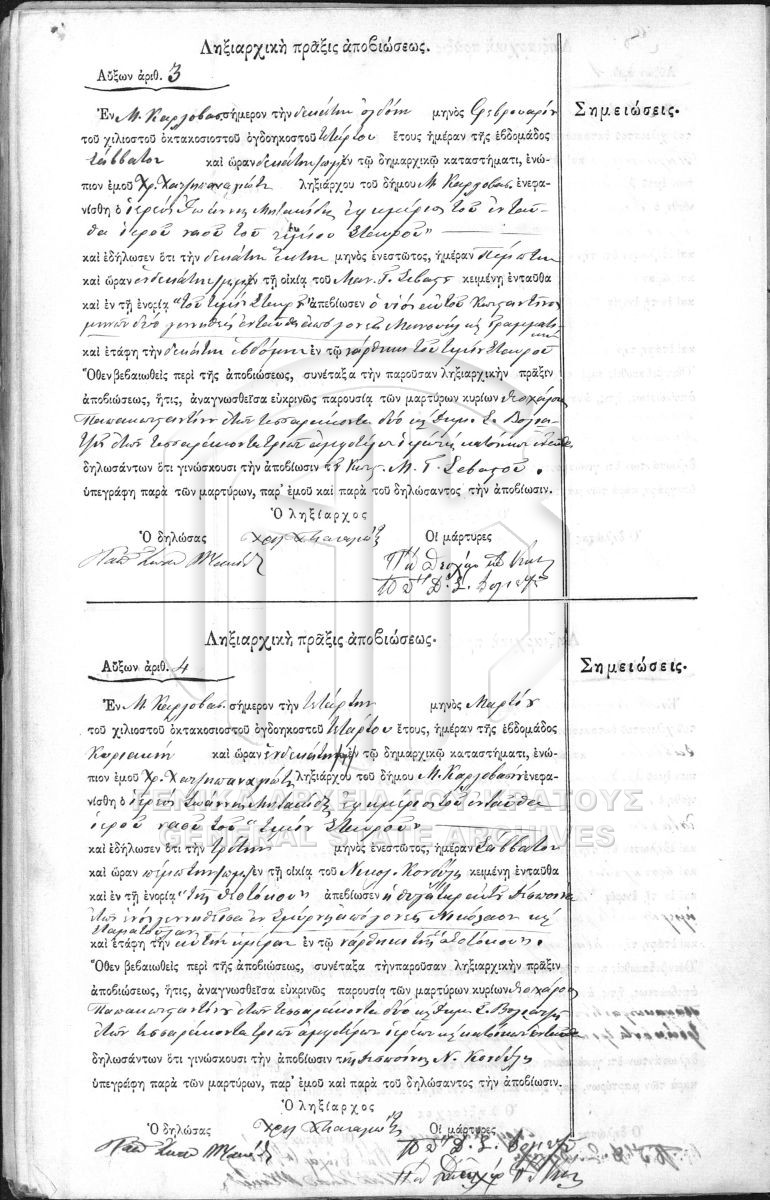 Ληξιαρχικὴ πρᾶξις ἀποβιώσεως.
Αὔξων ἀριθ. 3
Σημειώσεις.
Ἐν Μ. Καρλοβάσῳ σήμερον τὴν δεκάτην ὀγδόην μηνὸς Φεβρουαρίου
τοῦ χιλιοστοῦ ὀκτακοσιοστοῦ ὀγδοηκοστοῦ τετάρτου ἔτους ἡμέραν τῆς ἑβδομάδος
Σάββατον καὶ ὥραν δεκάτην π.μ. ἐν τῷ δημαρχικῷ καταστήματι, ἐνώ-
πιον ἐμοῦ Χρ. Χατζηπαναγιώτη ληξιάρχου τοῦ δήμου Μ. Καρλοβάσου ἐνεφα-
νίσθη ὁ ἱερεὺς Ἰωάννης ἐφημέριος τοῦ ἐνταῦ-
θα ἱεροῦ ναοῦ τοῦ "τιμίου Σταυροῦ"
καὶ ἐδήλωσεν ὅτι τὴν δεκάτην ἕκτην μηνὸς ἐνεστῶτος, ἡμέραν Πέμπτην
καὶ ὥραν ἑνδεκάτην ἐν τῇ οἰκίᾳ τοῦ Μαν. Γ. Σεβαστ κειμένῃ ἐνταῦθα
καὶ ἐν τῇ ἐνορίᾳ "τοῦ τιμίου Σταυροῦ" ἀπεβίωσεν ὁ υἱὸς αὐτοῦ Κωνσταντῖνος
μηνῶν δύο γεννηθεὶς ἐνταῦθα ἀπὸ γονεῖς Μανουὴλ καὶ Γραμματι-
καὶ ἐτάφη τὴν δεκάτην ἑβδόμην ἐν τῷ νάρθηκι τοῦ τιμίου Σταυροῦ
Ὅθεν βεβαιωθεὶς περὶ τῆς ἀποβιώσεως, συνέταξα τὴν παροῦσαν ληξιαρχικὴν πρᾶξιν
ἀποβιώσεως, ἥτις, ἀναγνωσθεῖσα εὐκρινῶς παρουσίᾳ τῶν μαρτύρων κυρίων Θεοχάρους
Παπακωνσταντίνου ἐτῶν τεσσαράκοντα δύο καὶ Δημ. Σ.
ἐτῶν τεσσαράκοντα τριῶν ἀμφοτέρων ἱερέων καὶ κατοίκων ἐνταῦθα
δηλωσάντων ὅτι γινώσκουσι τὴν ἀποβίωσιν τοῦ Κωνσ. Μ. Γ. Σεβαστοῦ.
ὑπεγράφη παρὰ τῶν μαρτύρων, παρ' ἐμοῦ καὶ παρὰ τοῦ δηλώσαντος τὴν ἀποβίωσιν.
Ὁ ληξίαρχος
Ὁ δηλώσας
Οἱ μάρτυρες
Ληξιαρχικὴ πρᾶξις ἀποβιώσεως.
Αὔξων ἀριθ. 4
Σημειώσεις.
Ἐν Μ. Καρλοβάσῳ σήμερον τὴν τετάρτην μηνὸς Μαρτίου
τοῦ χιλιοστοῦ ὀκτακοσιοστοῦ ὀγδοηκοστοῦ τετάρτου ἔτους, ἡμέραν τῆς ἑβδομάδος
Κυριακὴν καὶ ὥραν ἑνδεκάτην π.μ. ἐν τῷ δημαρχικῷ καταστήματι, ἐνώ-
πιον ἐμοῦ Χρ. Χατζηπαναγιώτη ληξιάρχου τοῦ δήμου Μ. Καρλοβάσου ἐνεφα-
νίσθη ὁ ἱερεὺς Ἰωάννης ἐφημέριος τοῦ ἐνταῦθα
ἱεροῦ ναοῦ τοῦ "τιμίου Σταυροῦ"
καὶ ἐδήλωσεν ὅτι τὴν τρίτην μηνὸς ἐνεστῶτος, ἡμέραν Σάββατον
καὶ ὥραν πέμπτην ἐν τῇ οἰκίᾳ τοῦ Νικολ. Κονδύλη κειμένῃ ἐνταῦθα
καὶ ἐν τῇ ἐνορίᾳ "τῆς Θεοτόκου" ἀπεβίωσεν ἡ θυγάτηρ αὐτοῦ Δέσποινα
ἐτῶν ἑνὸς γεννηθεῖσα ἐν Σμύρνῃ ἀπὸ γονεῖς Νικόλαον καὶ
Σταματούλαν
καὶ ἐτάφη τὴν αὐτὴν ἡμέραν ἐν τῷ νάρθηκι τῆς "Θεοτόκου".
Ὅθεν βεβαιωθεὶς περὶ τῆς ἀποβιώσεως, συνέταξα τὴν παροῦσαν ληξιαρχικὴν πρᾶξιν
ἀποβιώσεως, ἥτις, ἀναγνωσθεῖσα εὐκρινῶς παρουσίᾳ τῶν μαρτύρων κυρίων Θεοχάρους
Παπακωνσταντίνου ἐτῶν τεσσαράκοντα δύο καὶ Δημ. Σ.
ἐτῶν τεσσαράκοντα τριῶν ἀμφοτέρων ἱερέων καὶ κατοίκων ἐνταῦθα
δηλωσάντων ὅτι γινώσκουσι τὴν ἀποβίωσιν τῆς Δεσποίνης Ν. Κονδύλη
ὑπεγράφη παρὰ τῶν μαρτύρων, παρ' ἐμοῦ καὶ παρὰ τοῦ δηλώσαντος τὴν ἀποβίωσιν.
Ὁ ληξίαρχος
Ὁ δηλώσας
Οἱ μάρτυρες
ΓΕΝΙΚΑ ΑΡΧΕΙΑ ΤΟΥ ΚΡΑΤΟΥΣ
GENERAL STATE ARCHIVES